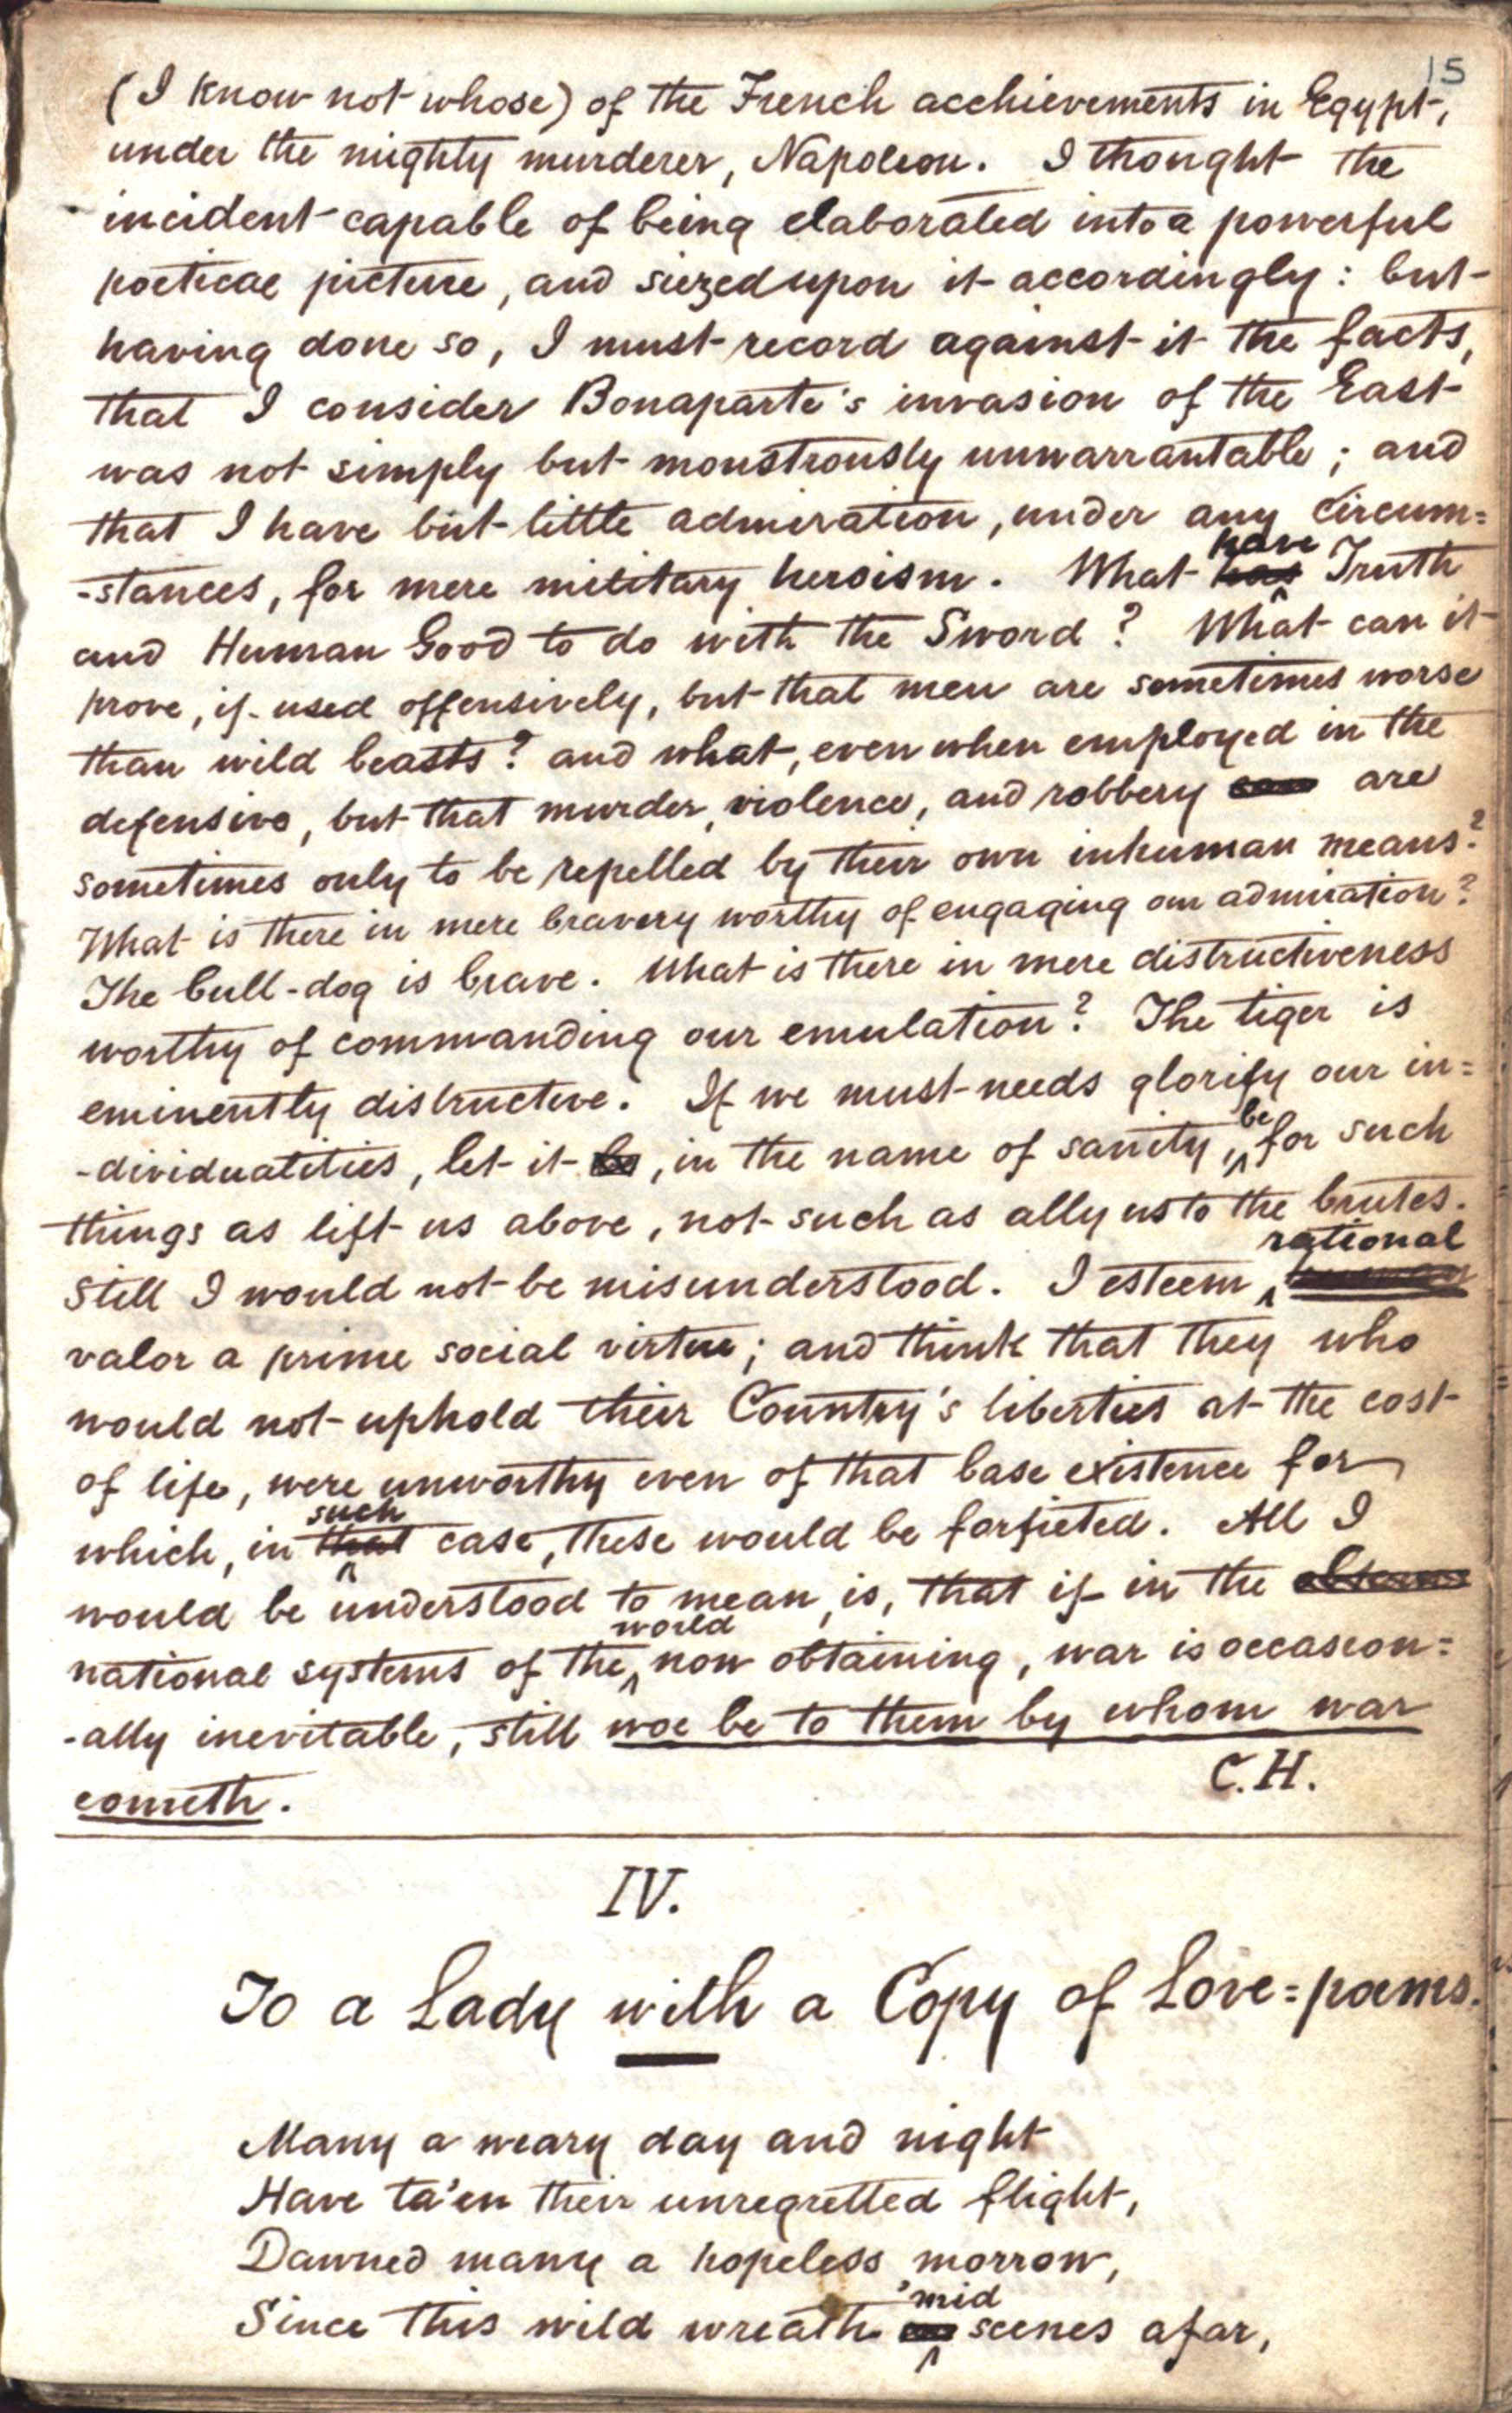 15
(I know not whose) of the French acchievements in Egypt,
under the mighty murderer, Napoleon. I thought the
incident capable of being elaborated into a powerful
poetical picture, and siezed upon it accordingly: but
having done so, I must record against it the facts,
that I consider Bonaparte's invasion of the East
was not simply but monstrously unwarrantable; and
that I have but little admiration, under any circum=
-stances, for mere military heroism. What have Truth
and Human Good to do with the Sword? What can it
prove, if used offensively, but that men are sometimes worse
than wild beasts? and what, even when employed in the
defensive, but that murder, violence, and robbery are
sometimes only to be repelled by their own inhuman means?
What is there in mere bravery worthy of engaging our admiration?
The bull-dog is brave. What is there in mere distructiveness
worthy of commanding our emulation? The tiger is
eminently distructive. If we must needs glorify our in=
-dividualities, let it, in the name of sanity, be for such
things as lift us above, not such as ally us to the brutes.
Still I would not be misunderstood. I esteem rational
valor a prime social virtue; and think that they who
would not uphold their Country's liberties at the cost
of life, were unworthy even of that base existence for
which, in such case, these would be forfieted. All I
would be understood to mean, is, that if in the
national systems of the world now obtaining, war is occasion=
-ally inevitable, still woe be to them by whom war
cometh.
C.H.
IV.
To a Lady with a Copy of Love=poems.
Many a weary day and night
Have ta'en their unregretted flight,
Dawned many a hopeless morrow,
Since this wild wreath 'mid scenes afar,